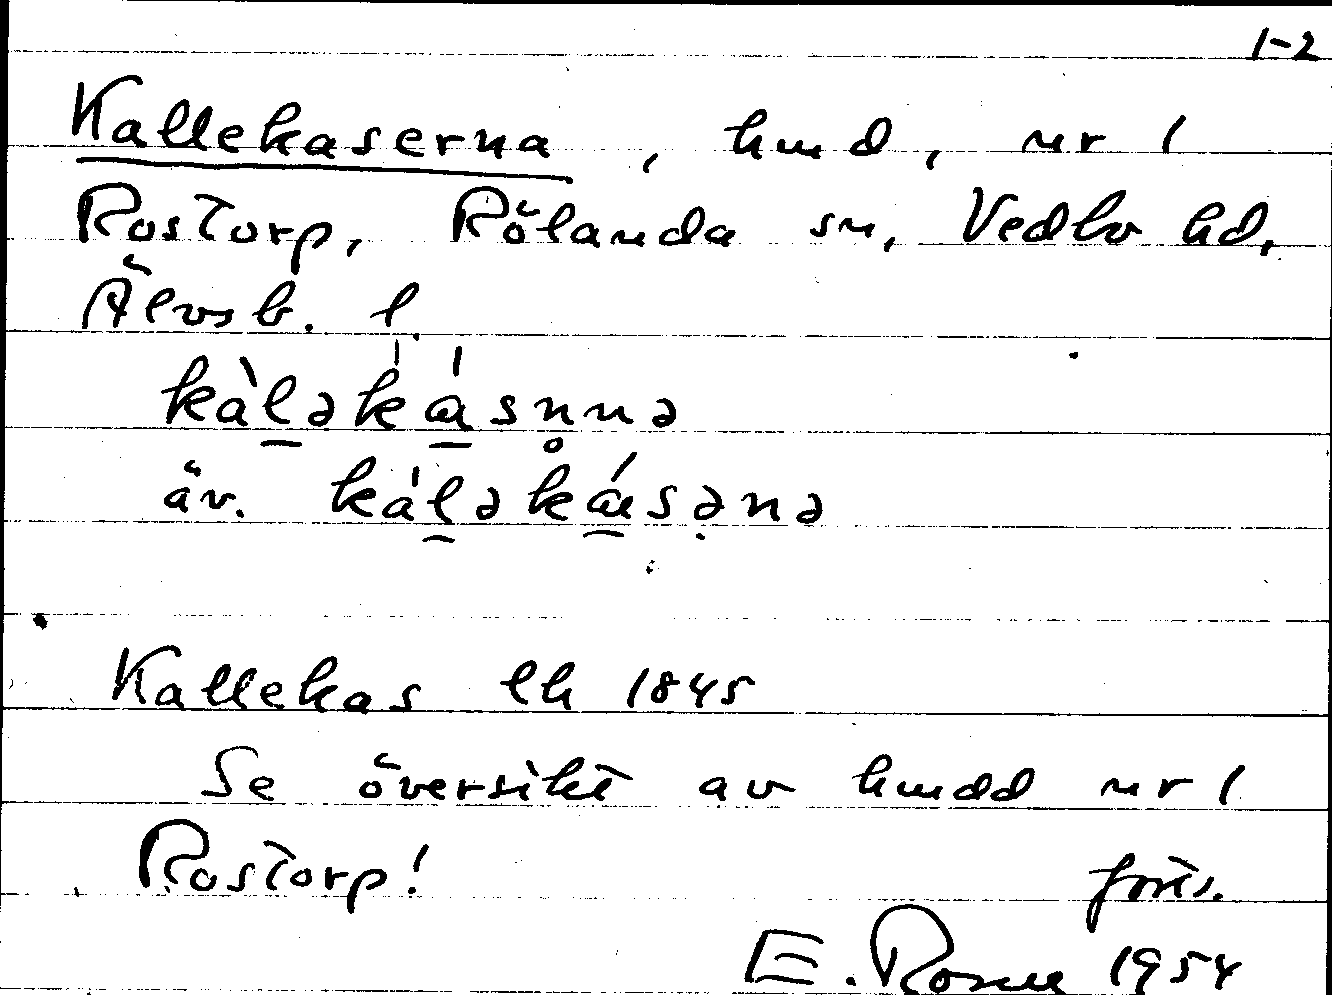 1-2
Kallekaserna, hmd, nr 1
Rostorp, Rölanda sn, Vedbo hd,
Älvsb. l.
kàl̠əkɑ̠́sn̥nə
äv. kál̠əkɑ̠́sə̣nə
Kallekas lh 1845
Se översikt av hmdd nr 1
Rostorp!
forts.
E. 1954